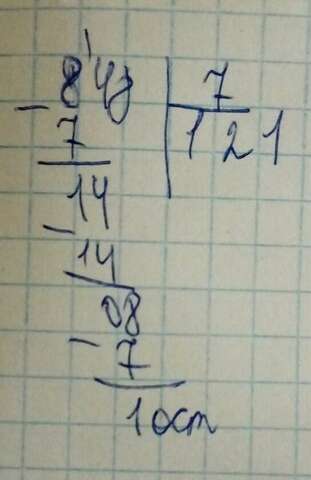 848 7
- 7 121
14
- 14
08
- 7
1 ост